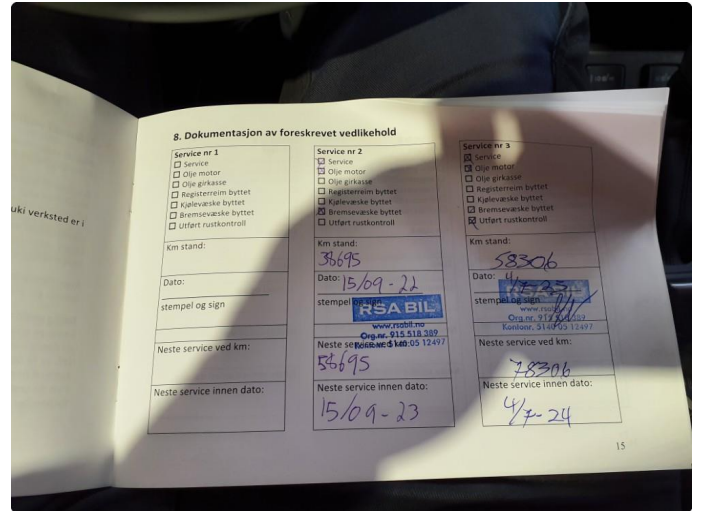 uki verksted er i
8. Dokumentasjon av foreskrevet vedlikehold
Service nr 1
☐ Service
☐ Olje motor
☐ Olje girkasse
☐ Registerreim byttet
☐ Kjølevæske byttet
☐ Bremsevæske byttet
☐ Utført rustkontroll
Km stand:
Dato:
stempel og sign
Neste service ved km:
Neste service innen dato:
Service nr 2
☒ Service
☒ Olje motor
☐ Olje girkasse
☐ Registerreim byttet
☐ Kjølevæske byttet
☒ Bremsevæske byttet
☐ Utført rustkontroll
Km stand:
38695
Dato: 15/09-22
stempel og sign
RSA BIL
www.rsabil.no
Org.nr. 915 518 389
Kontonr. 5140 05 12497
Neste service ved km:
58695
Neste service innen dato:
15/09-23
Service nr 3
☒ Service
☒ Olje motor
☐ Olje girkasse
☐ Registerreim byttet
☐ Kjølevæske byttet
☐ Bremsevæske byttet
☒ Utført rustkontroll
Km stand:
58306
Dato: 4/7-23
stempel og sign
RSA BIL
www.rsabil.no
Org.nr. 915 518 389
Kontonr. 5140 05 12497
Neste service ved km:
78306
Neste service innen dato:
4/7-24
15